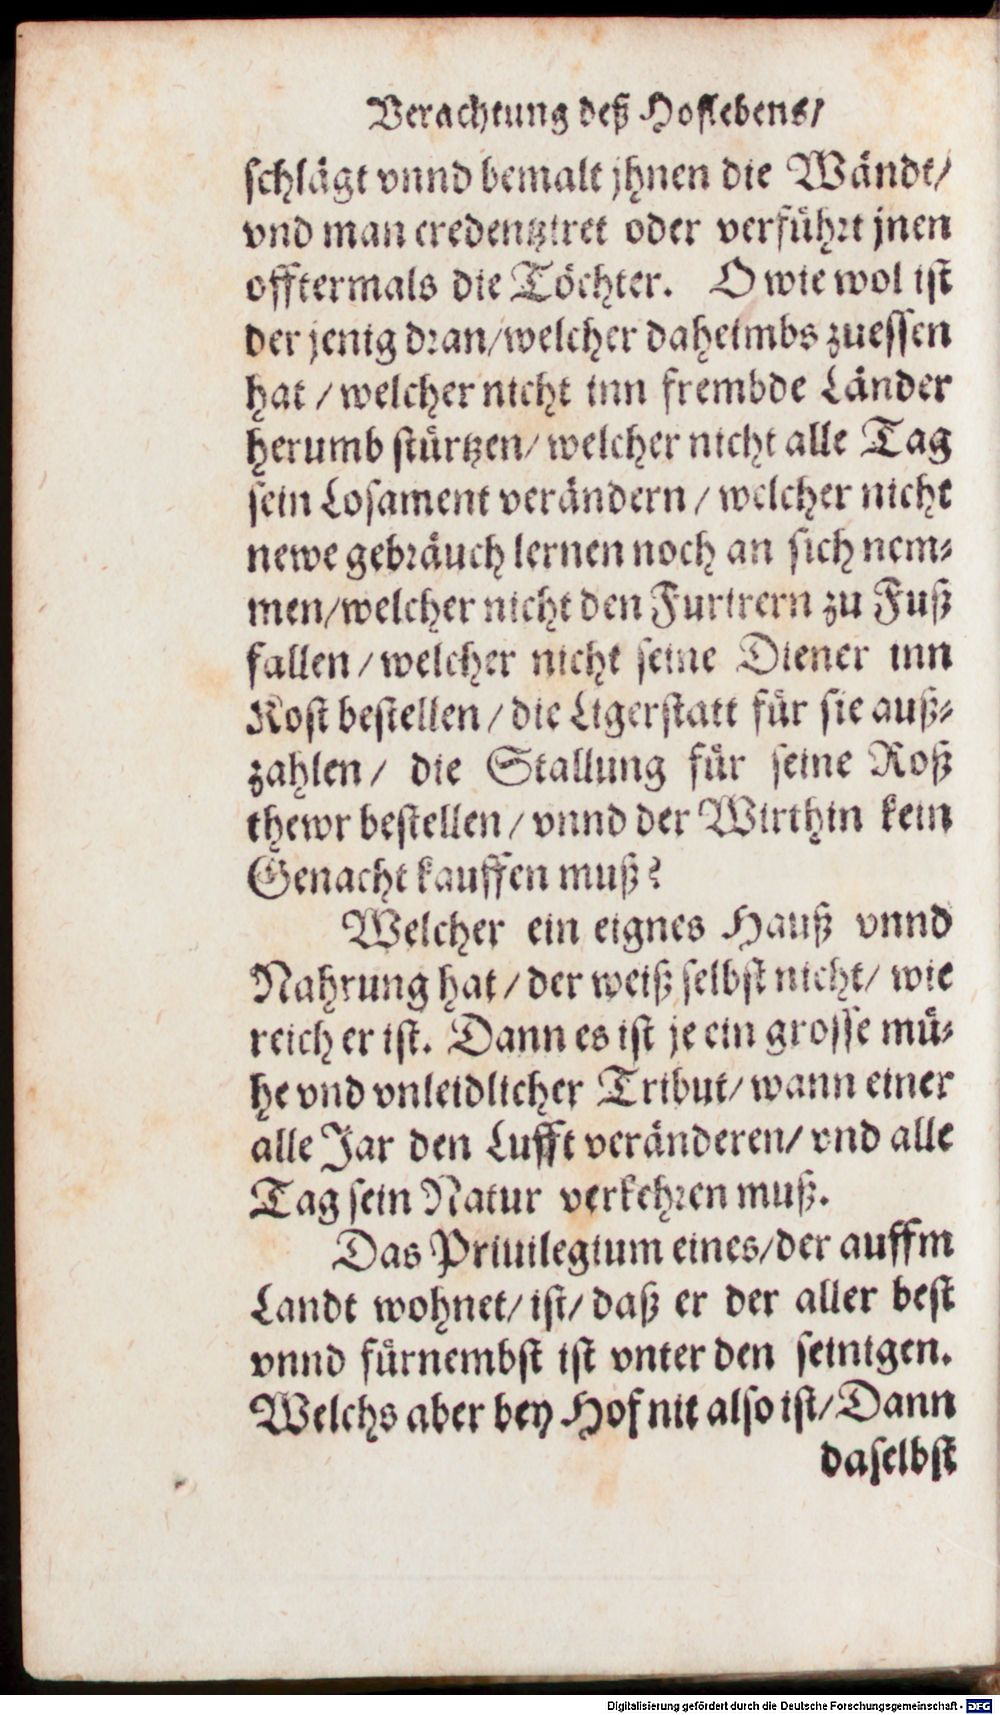 Verachtung deß Hoflebens/
schlägt vnnd bemalt jhnen die Wändt/
vnd man credentziret oder verführt jnen
offtermals die Töchter. O wie wol ist
der jenig dran/welcher daheimbs zuessen
hat / welcher nicht inn frembde Länder
herumb stürtzen/ welcher nicht alle Tag
sein Losament verändern / welcher nicht
newe gebräuch lernen noch an sich nem⸗
men/welcher nicht den Furirern zu Fuß
fallen / welcher nicht seine Diener inn
Kost bestellen / die Ligerstatt für sie auß⸗
zahlen / die Stallung für seine Roß
thewr bestellen / vnnd der Wirthin kein
Genacht kauffen muß?
Welcher ein eignes Hauß vnnd
Nahrung hat / der weiß selbst nicht/ wie
reich er ist. Dann es ist je ein grosse mü⸗
he vnd vnleidlicher Tribut/ wann einer
alle Jar den Lufft veränderen/ vnd alle
Tag sein Natur verkehren muß.
Das Priuilegium eines/der auffm
Landt wohnet/ ist/ daß er der aller best
vnnd fürnembst ist vnter den seinigen.
Welchs aber bey Hof nit also ist/ Dann
daselbst
Digitalisierung gefördert durch die Deutsche Forschungsgemeinschaft - DFG